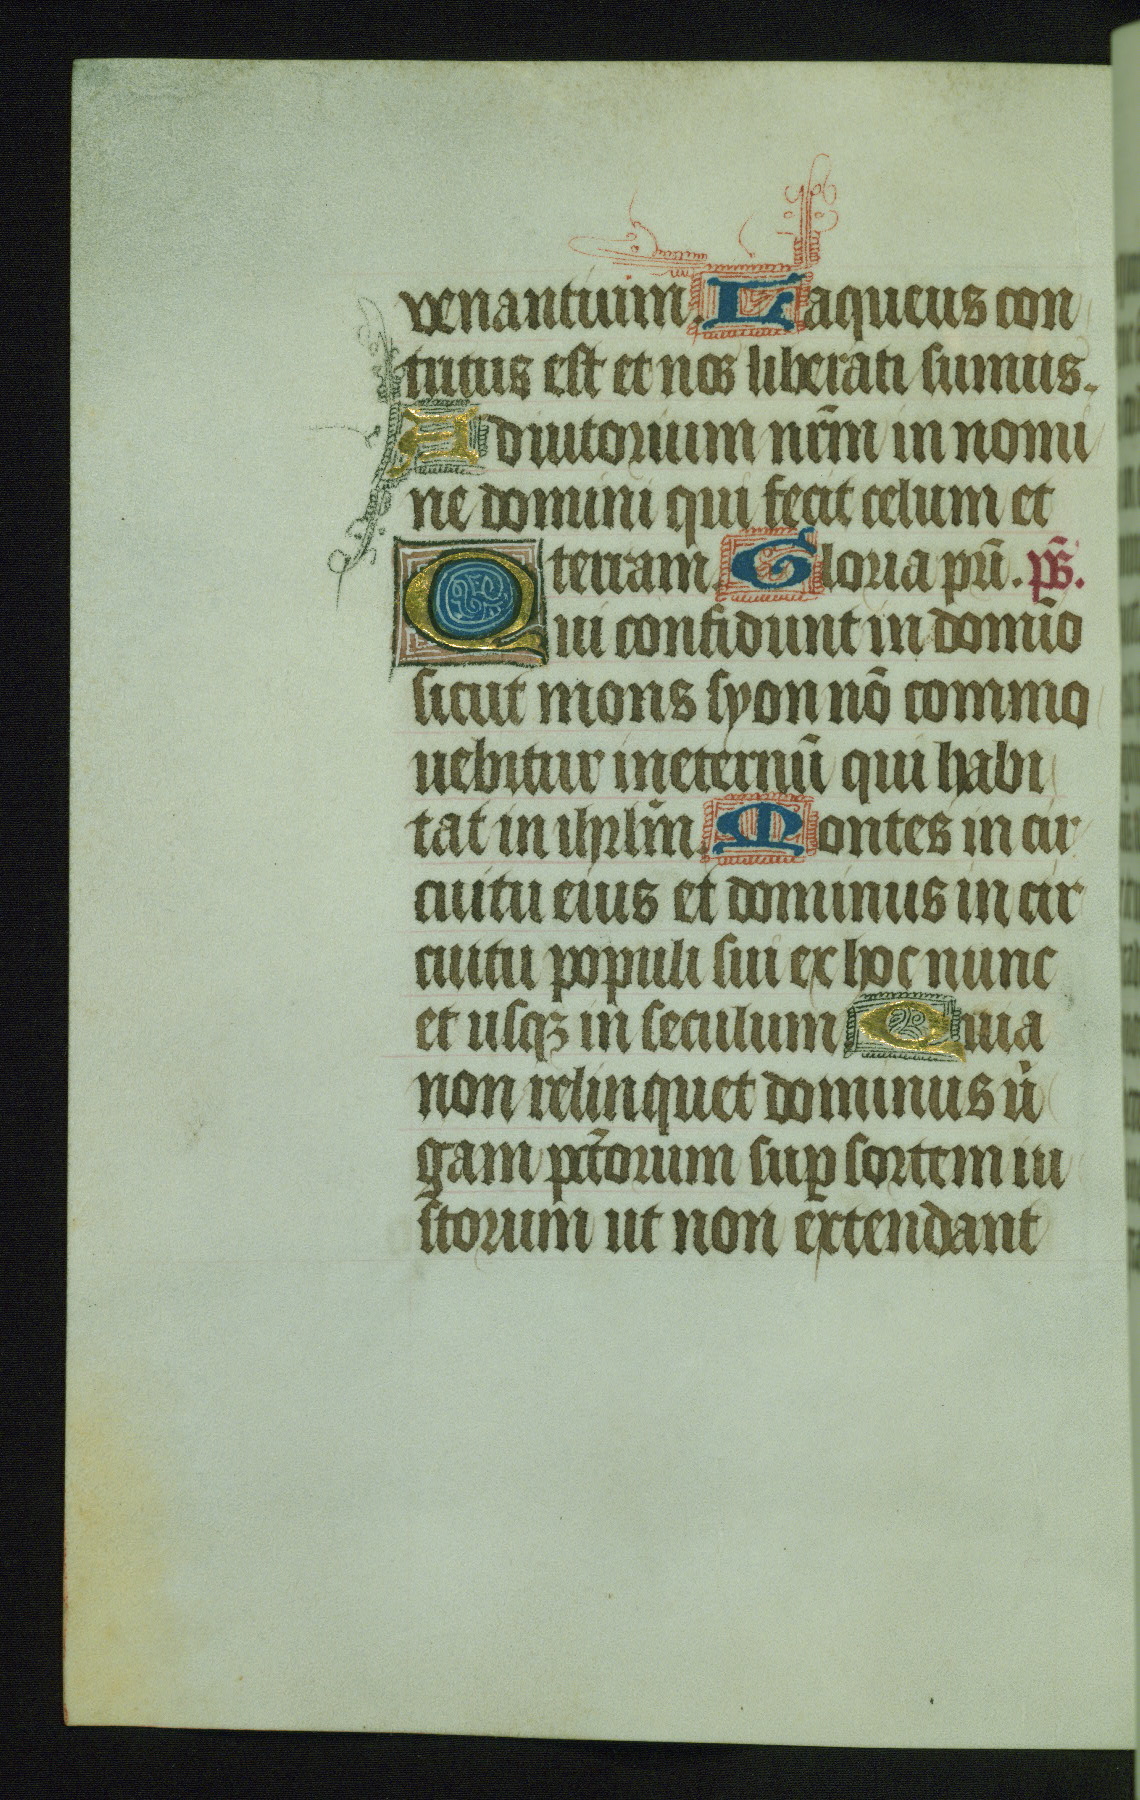 venantium. Laqueus con
tritus est et nos liberati sumus.
Adiutorium nr̄m in nomi
ne domini qui fecit celum et
terram. Gloria pr̄i. ps̄.
Qui confidunt in domīo
sicut mons syon nō commo
uebitur in eternū qui habi
tat in ihrlm̄. Montes in cir
cuitu eius et dominus in cir
cuitu populi sui ex hoc nunc
et usqꝫ in seculum. Quia
non relinquet dominus uͥ
gam pctōrum suꝑ sortem iu
storum ut non extendant